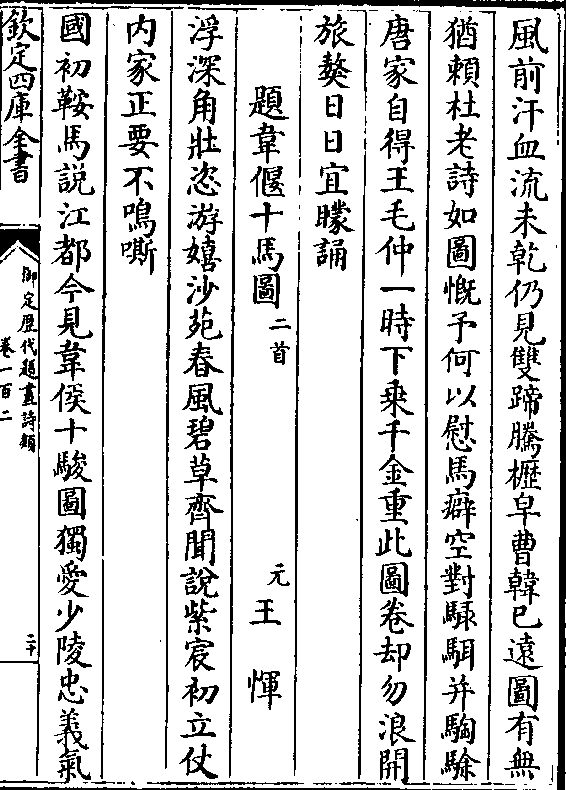 風前汗血流未乾仍見雙蹄騰櫪皁曹韓已遠圖有無
猶賴杜老詩如圖慨予何以慰馬癖空對騄駬并騊駼
唐家自得王毛仲一時下乗千金重此圖卷却勿浪開
旅獒日日宜矇誦
題韋偃十馬圖二首　元王惲
浮深角壯恣游嬉沙苑春風碧草齊聞說紫宸初立仗
内家正要不鳴嘶
國初鞍馬説江都今見韋侯十駿圖獨愛少陵忠義氣
欽定四庫全書
御定歴代題畫詩類
卷一百二
二十